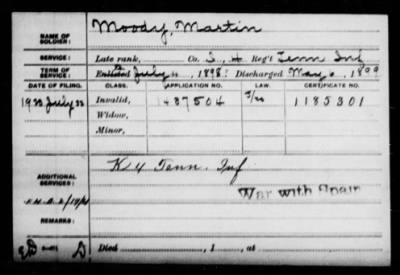 NAME OF SOLDIER: Moody, Martin
SERVICE: Late rank, Co. Reg't Tenn Inf
TERM OF SERVICE: Enlisted July 1898. Discharged May 6, 1899
DATE OF FILING. CLASS. APPLICATION NO. LAW. CERTIFICATE NO.
July Invalid, 1487504 1185301
Widow,
Minor,
ADDITIONAL SERVICES: K 4 Tenn. Inf
War with Spain
REMARKS:
Died , 1 , at